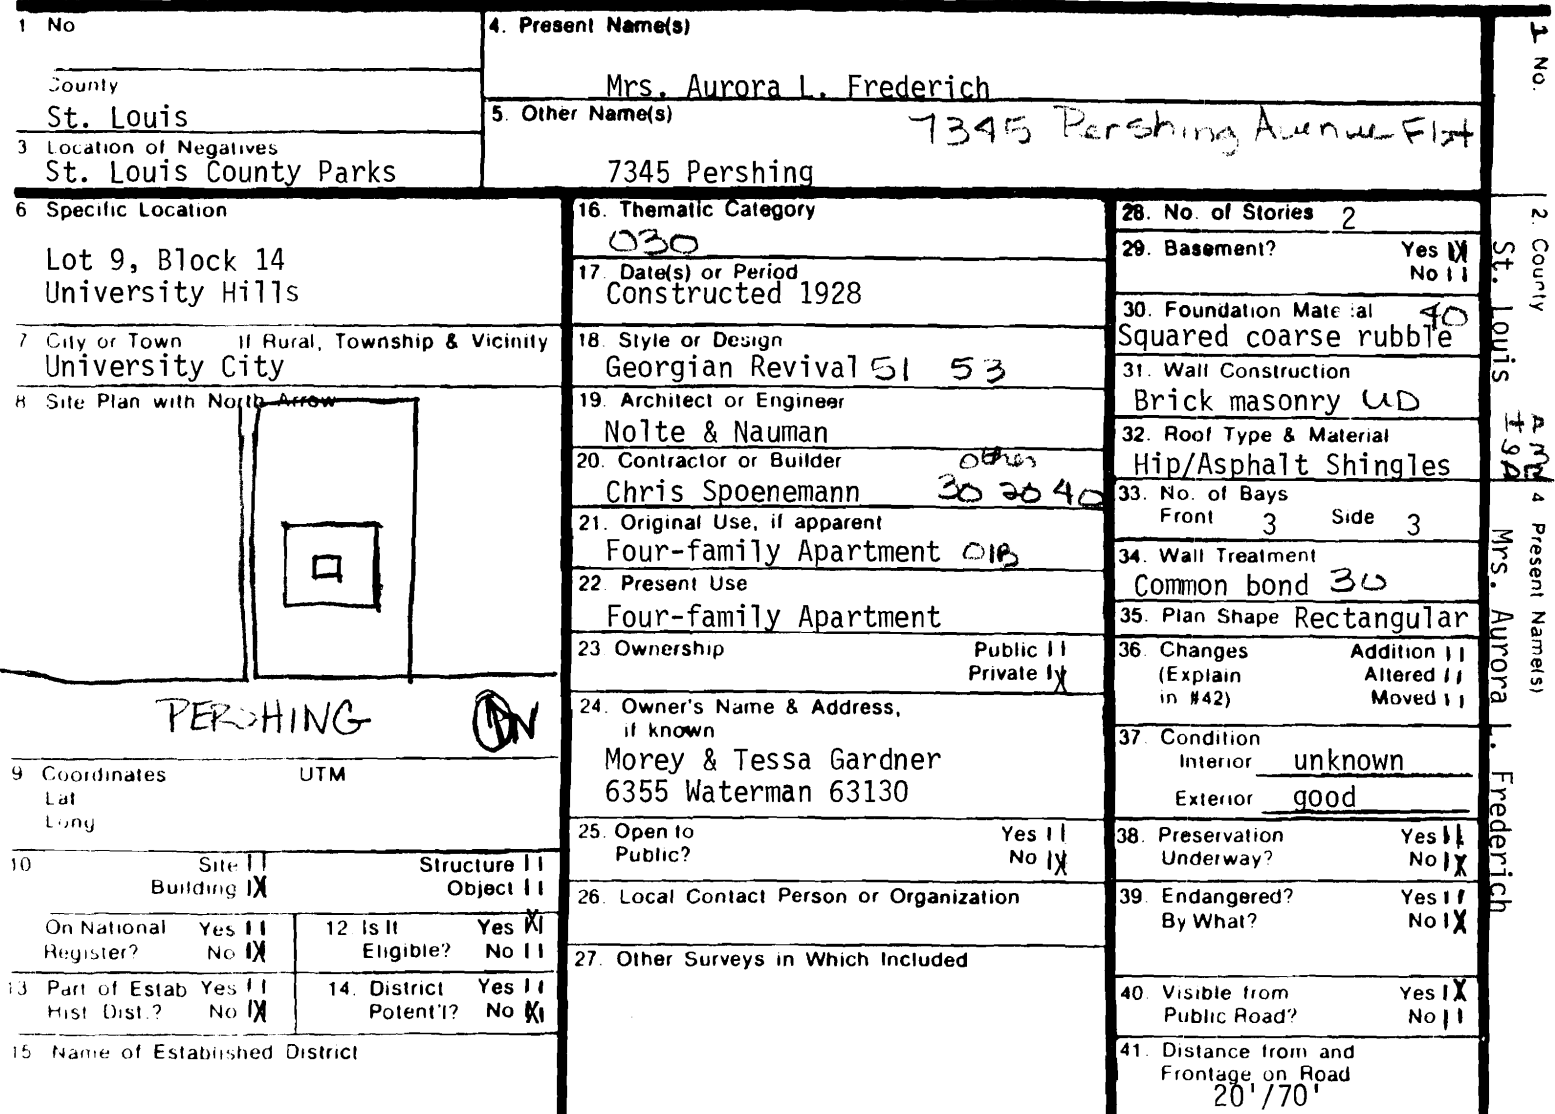 1 No
County
St. Louis
3 Location of Negatives
St. Louis County Parks
4. Present Name(s)
Mrs. Aurora L. Frederich
5. Other Name(s)
7345 Pershing Avenue Flat
7345 Pershing
6 Specific Location
Lot 9, Block 14
University Hills
7 City or Town If Rural, Township & Vicinity
University City
8 Site Plan with North Arrow
PERSHING
N
9 Coordinates UTM
Lat
Long
10 Site Structure
Building X Object
On National Yes
Register? No X
12 Is It Yes X
Eligible? No
13 Part of Estab Yes
Hist. Dist.? No X
14. District Yes
Potent'l? No X
15 Name of Established District
16. Thematic Category
030
17. Date(s) or Period
Constructed 1928
18. Style or Design
Georgian Revival 51 53
19. Architect or Engineer
Nolte & Nauman
20. Contractor or Builder other
Chris Spoenemann 30 20 40
21. Original Use, if apparent
Four-family Apartment 01B
22. Present Use
Four-family Apartment
23 Ownership Public
Private X
24. Owner's Name & Address,
if known
Morey & Tessa Gardner
6355 Waterman 63130
25. Open to Yes
Public? No X
26. Local Contact Person or Organization
27. Other Surveys in Which Included
28. No. of Stories 2
29. Basement? Yes X
No
30. Foundation Material 40
Squared coarse rubble
31. Wall Construction
Brick masonry UD
32. Roof Type & Material
Hip/Asphalt Shingles
33. No. of Bays
Front 3 Side 3
34. Wall Treatment
Common bond 30
35. Plan Shape Rectangular
36. Changes Addition
(Explain Altered
in #42) Moved
37. Condition
Interior unknown
Exterior good
38. Preservation Yes
Underway? No X
39. Endangered? Yes
By What? No X
40. Visible from Yes X
Public Road? No
41. Distance from and
Frontage on Road
20'/70'
1 No.
2. County
St. Louis
4 Present Name(s)
Mrs. Aurora L. Frederich